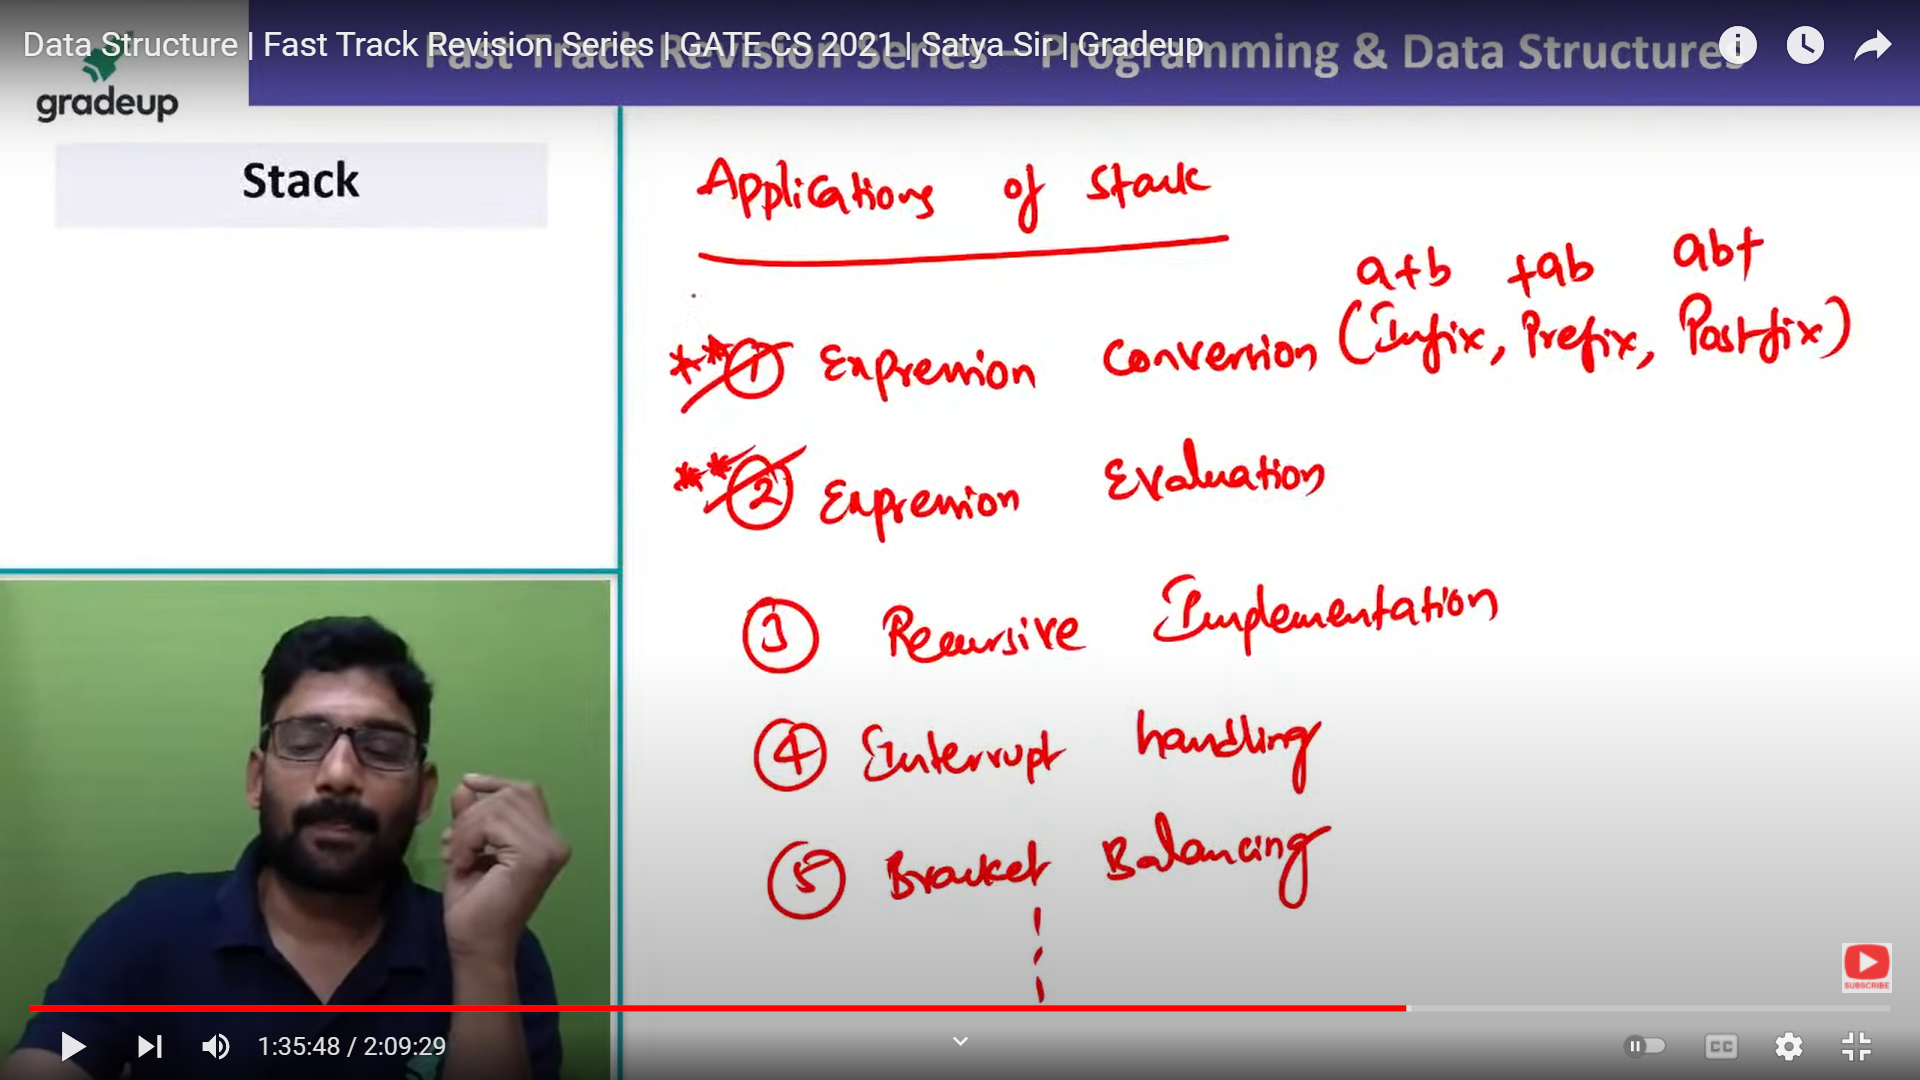 Data Structure | Fast Track Revision Series | GATE CS 2021 | Satya Sir | Gradeup
Fast Track Revision Series – Programming & Data Structures
gradeup
Stack
Applications of Stack
a+b +ab ab+
** 1 Expression Conversion (Infix, Prefix, Postfix)
** 2 Expression Evaluation
3 Recursive Implementation
4 Interrupt handling
5 Bracket Balancing
SUBSCRIBE
1:35:48 / 2:09:29
CC